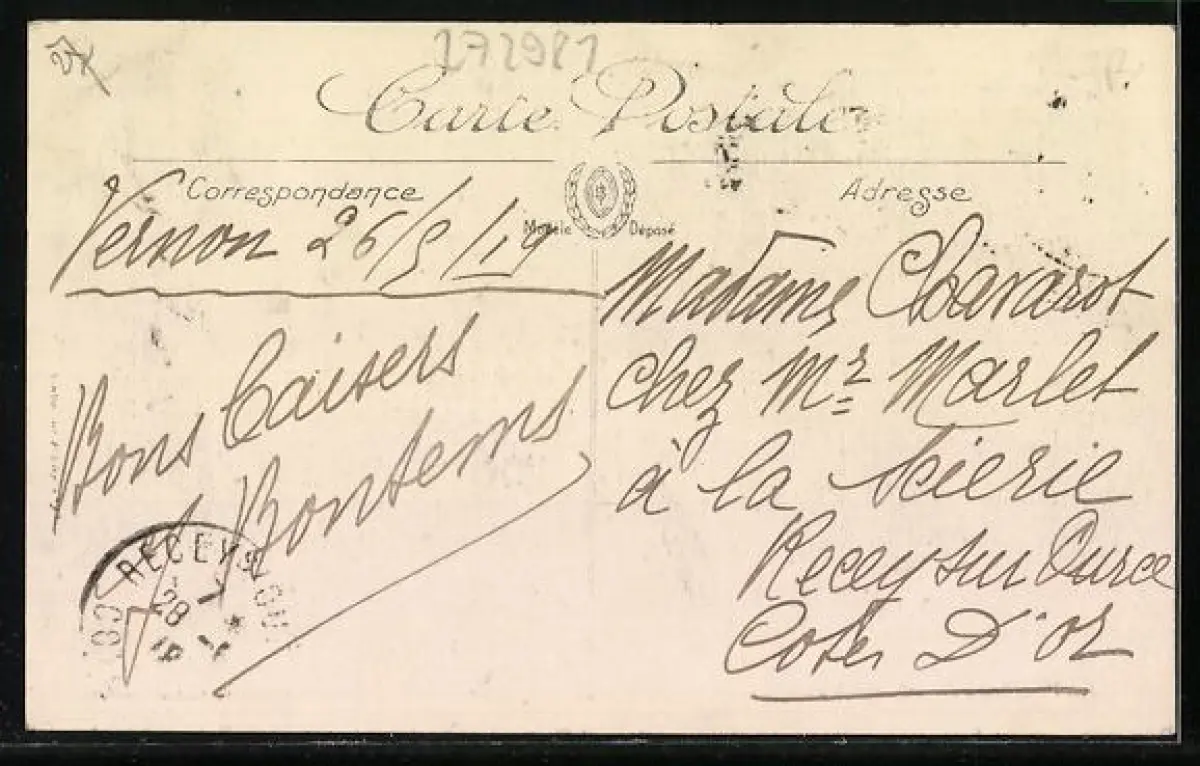 272981
Carte Postale
Correspondance
Adresse
Modèle Déposé
Vernon 26/5/19
Madame Chavarot
chez Mr Marlet
à la Scierie
Recey sur Ource
Cote d'or
Bons Baisers
Bontems
RECEY S OU
28